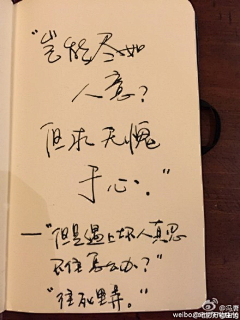 “岂能尽如
人意？
但求无愧
于心。”
—“但是遇上坏人真忍
不住怎么办？”
“往死里弄。”
@冯唐